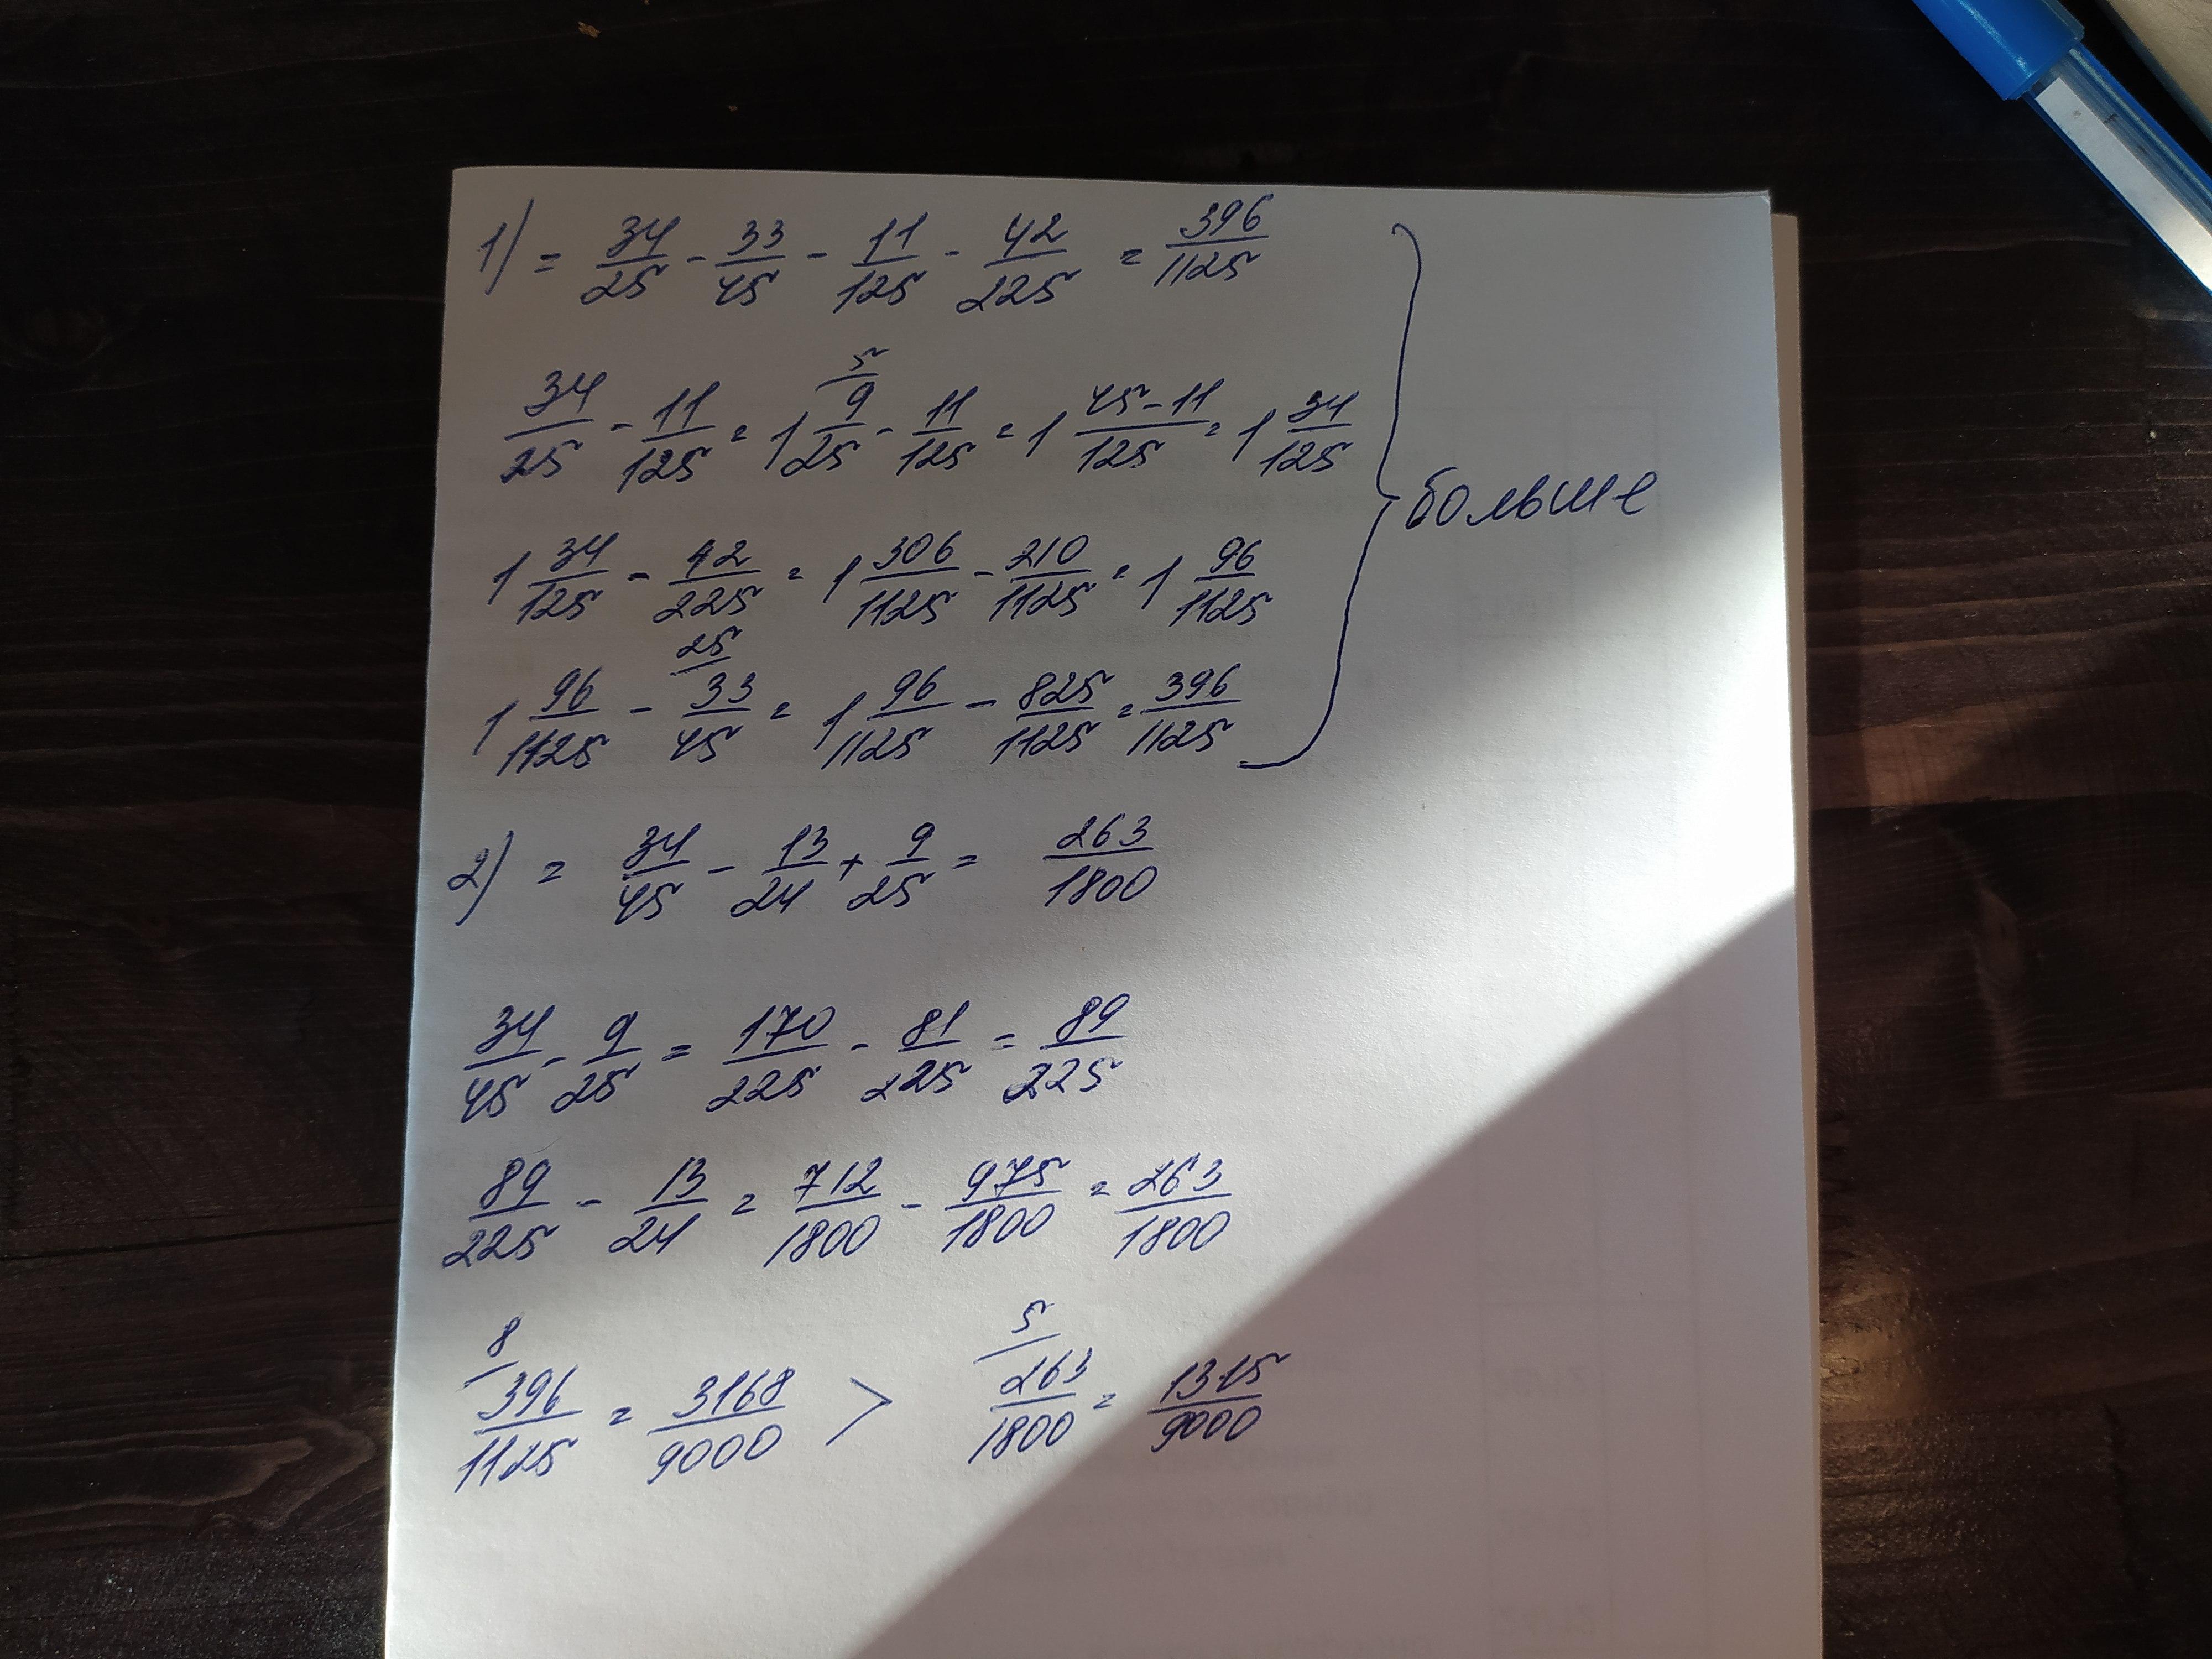 1) = 34/25 - 33/45 - 11/125 - 42/225 = 396/1125
34/25 - 11/125 = 1 9/25 (5) - 11/125 = 1 45-11/125 = 1 34/125
1 34/125 - 42/225 = 1 306/1125 - 210/1125 = 1 96/1125
1 96/1125 - 33/45 (25) = 1 96/1125 - 825/1125 = 396/1125
больше
2) = 34/45 - 13/24 + 9/25 = 263/1800
34/45 - 9/25 = 170/225 - 81/225 = 89/225
89/225 - 13/24 = 712/1800 - 975/1800 = 263/1800
396/1125 (8) = 3168/9000 > 263/1800 (5) = 1315/9000